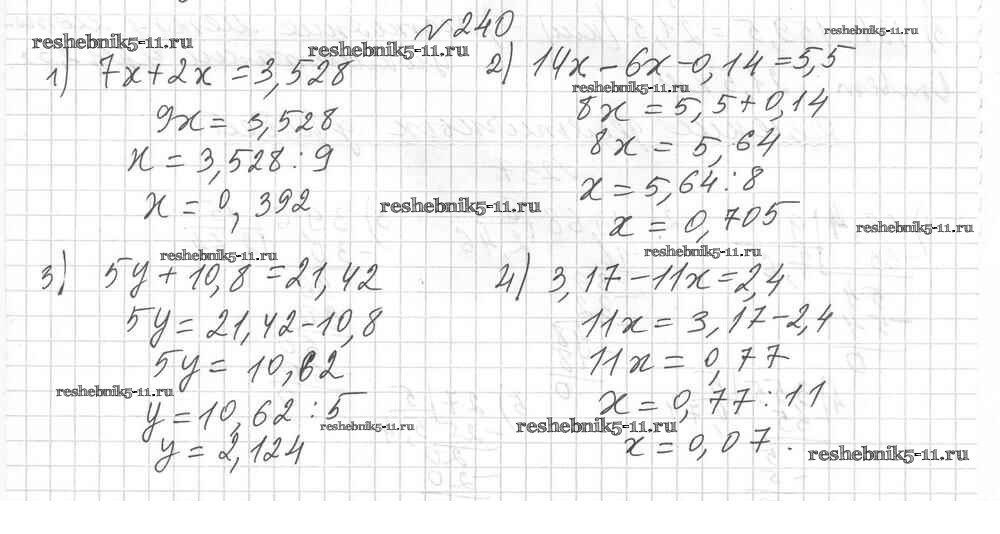 №240
reshebnik5-11.ru
reshebnik5-11.ru
reshebnik5-11.ru
1) 7x+2x=3,528
9x=3,528
x=3,528:9
x=0,392
2) 14x-6x-0,14=5,5
reshebnik5-11.ru
8x=5,5+0,14
8x=5,64
x=5,64:8
x=0,705
reshebnik5-11.ru
reshebnik5-11.ru
reshebnik5-11.ru
3) 5y+10,8=21,42
5y=21,42-10,8
5y=10,62
reshebnik5-11.ru
y=10,62:5
reshebnik5-11.ru
y=2,124
reshebnik5-11.ru
4) 3,17-11x=2,4
11x=3,17-2,4
11x=0,77
x=0,77:11
reshebnik5-11.ru
x=0,07.
reshebnik5-11.ru